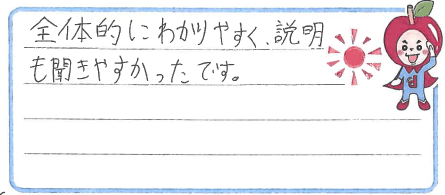 全体的にわかりやすく、説明
も聞きやすかったです。